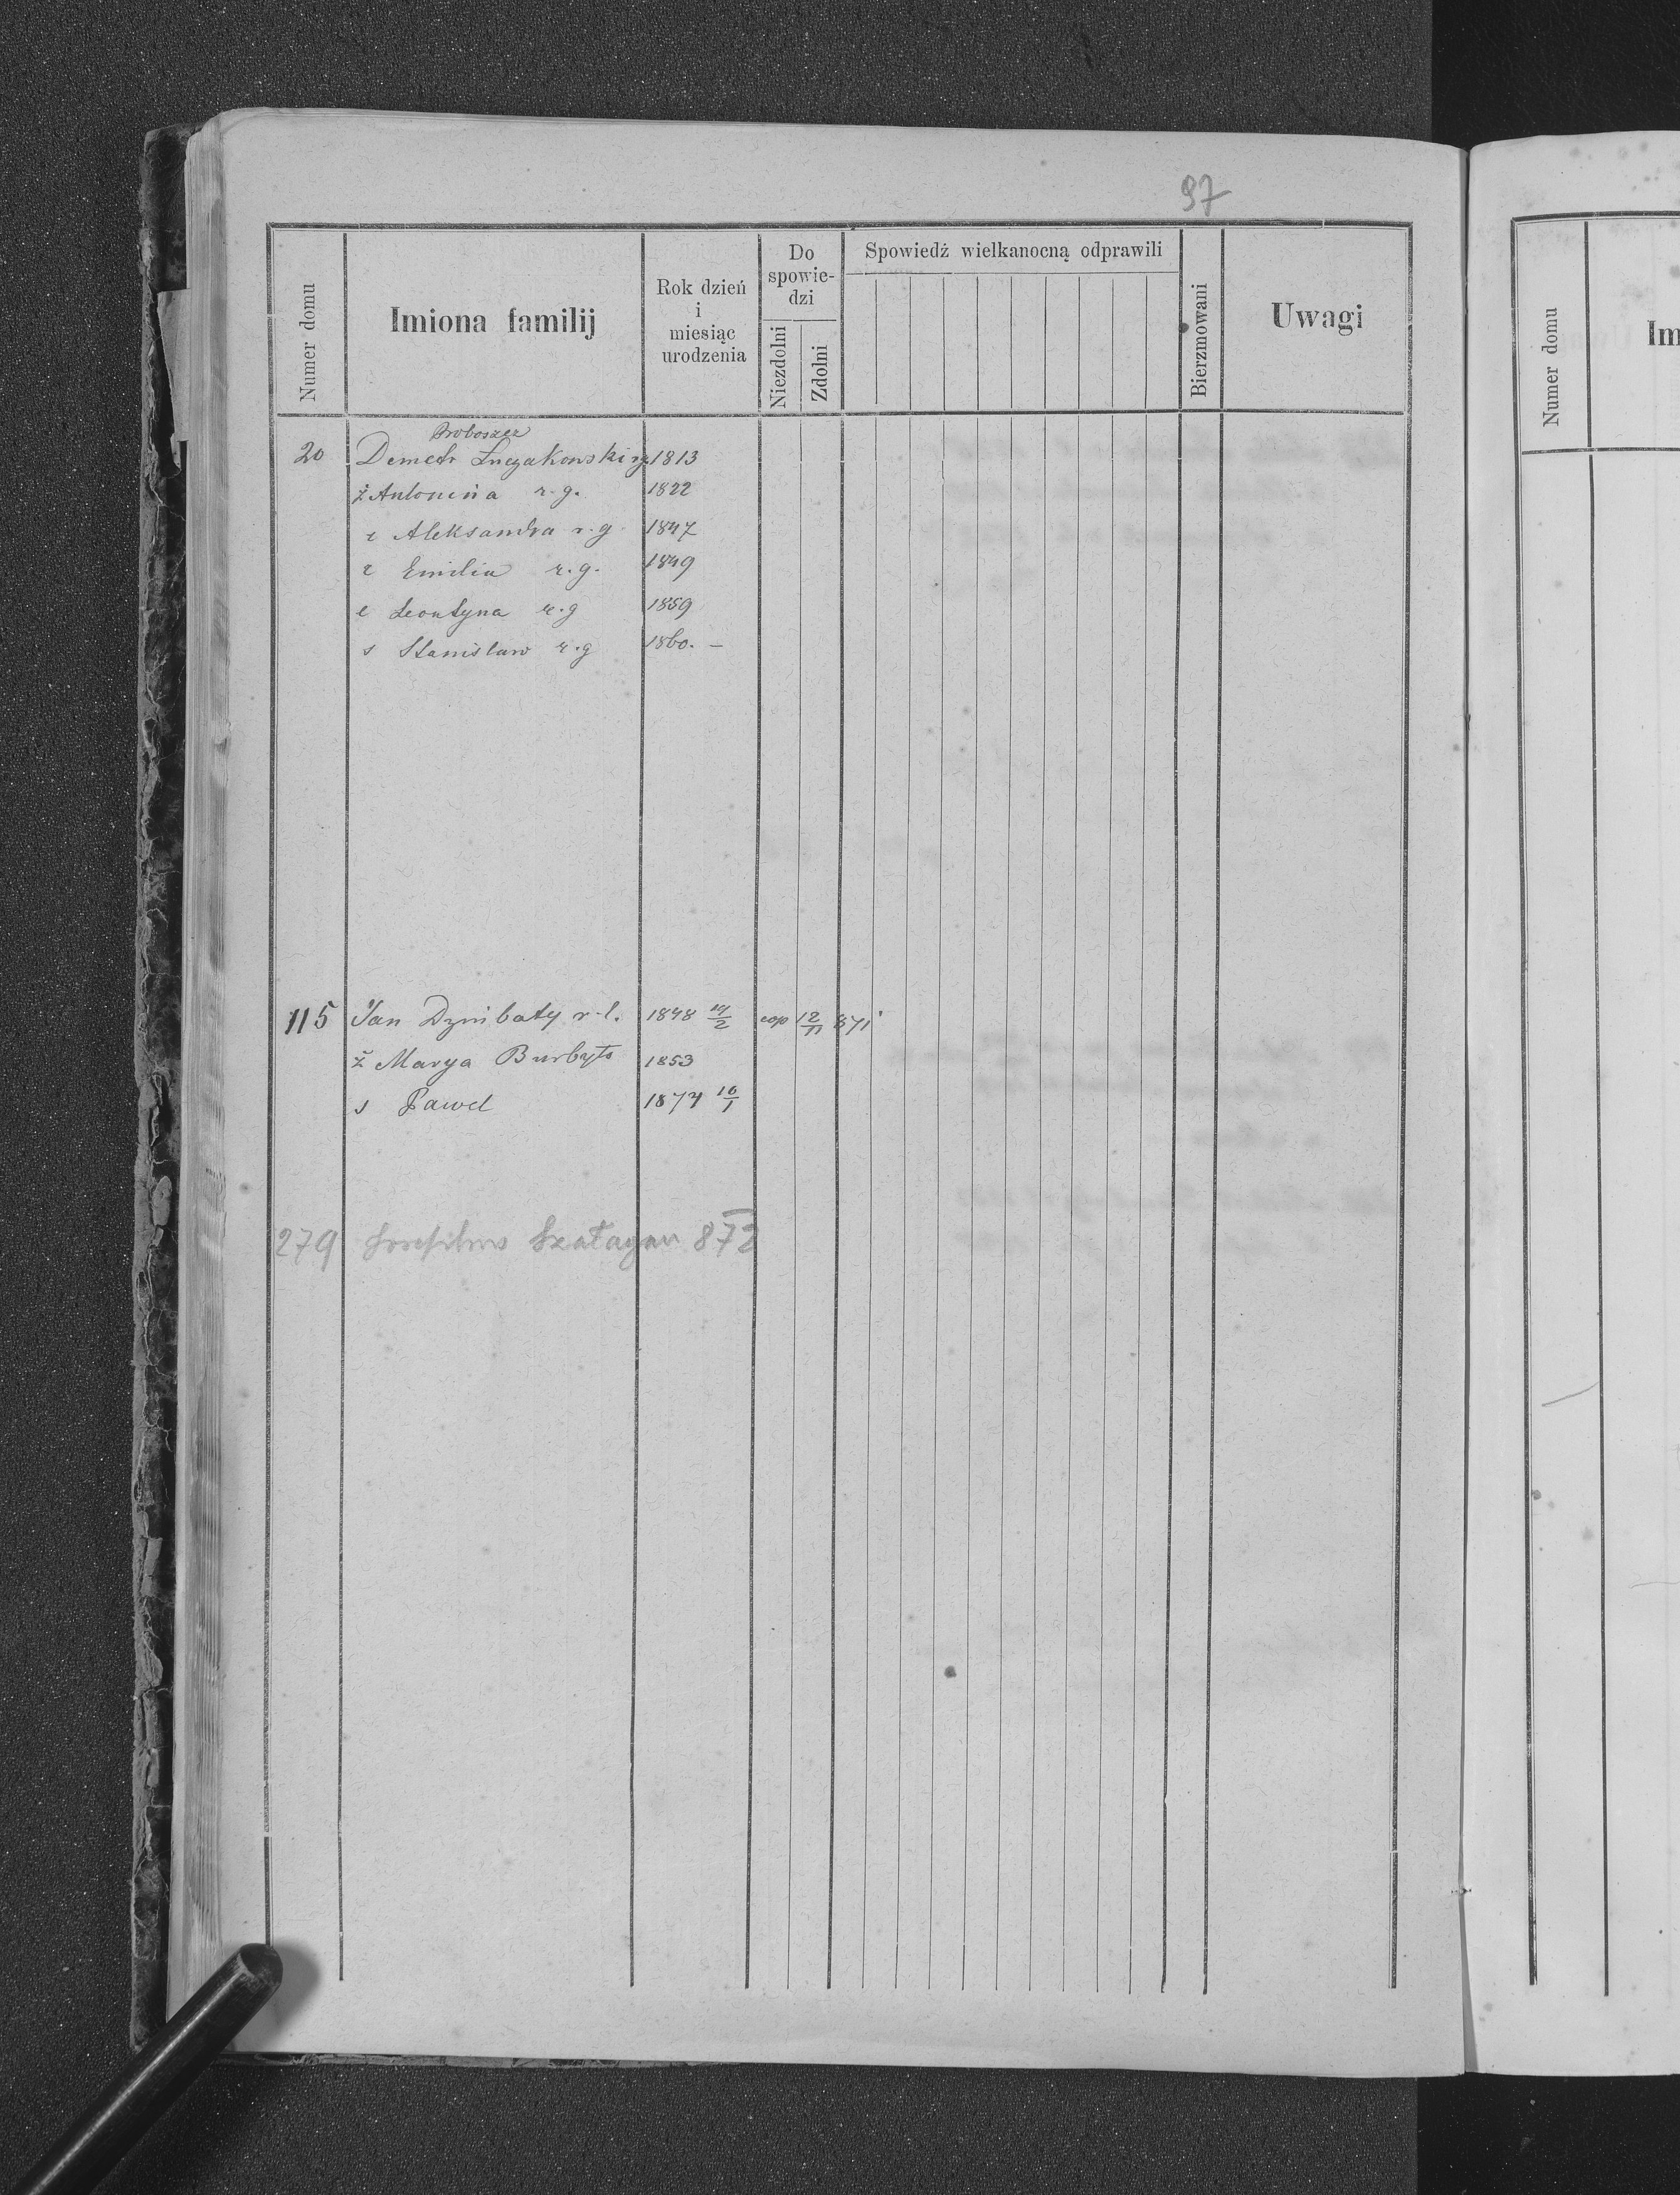 97
Numer domu
Imiona familij
Rok dzień
i
miesiąc
urodzenia
Do
spowie-
dzi
Niezdolni
Zdolni
Spowiedź wielkanocną odprawili
Bierzmowani
Uwagi
Proboszcz
20 Demetr Łuczakowski r.g. 1813
ż Antonina r.g. 1822
c Aleksandra r.g. 1847
c Emilia r.g. 1849
c Leontyna r.g 1859
s Stanisław r.g 1860. –
115 Jan Dzmibaty r.l. 1848 19/2 cop 12/11 871
ż Marya Burbyło 1853
s Paweł 1874 16/1
279 Szałagan 872
Numer domu
Im